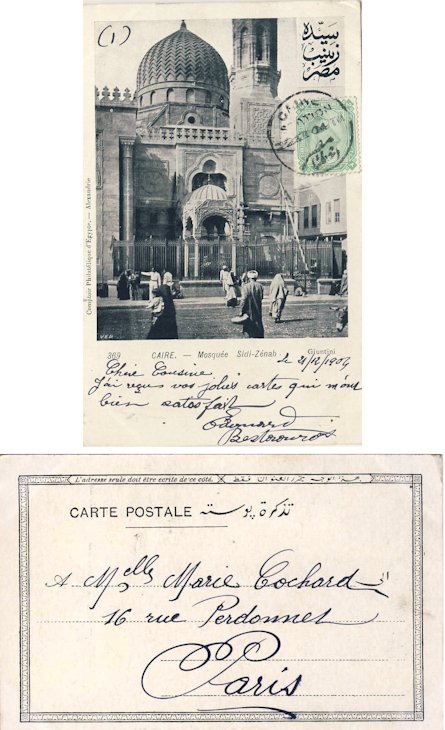 (1)
سيّدة
زينب
مصر
Comptoir Philatélique d'Egypte. — Alexandrie
VED
369 CAIRE. — Mosquée Sidi-Zénab Giuntini
le 21/12/1904
Chère Cousine
J'ai reçus vos jolies carte qui m'ont
bien satisfait
Edouard
L'adresse seule doit être écrite de ce côté.
CARTE POSTALE تذكرة بوستة
A Melle Marie Cochard
16 rue Perdonnet
Paris